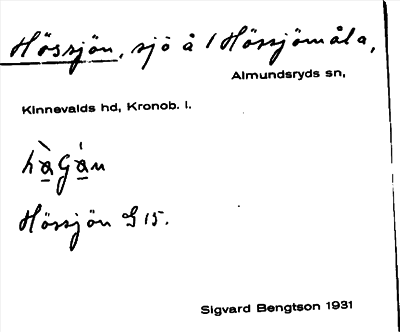 Hössjön, sjö å 1 Hössjömåla,
Almundsryds sn,
Kinnevalds hd, Kronob. l.
Hössjön G 15.
Sigvard Bengtson 1931